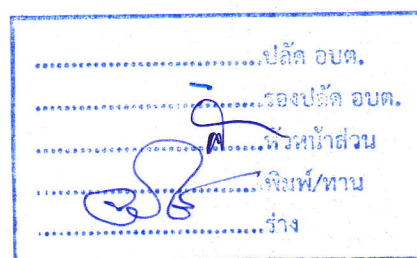 ....................................ปลัด อบต.
....................................รองปลัด อบต.
....................................หัวหน้าส่วน
....................................พิมพ์/ทาน
....................................ร่าง